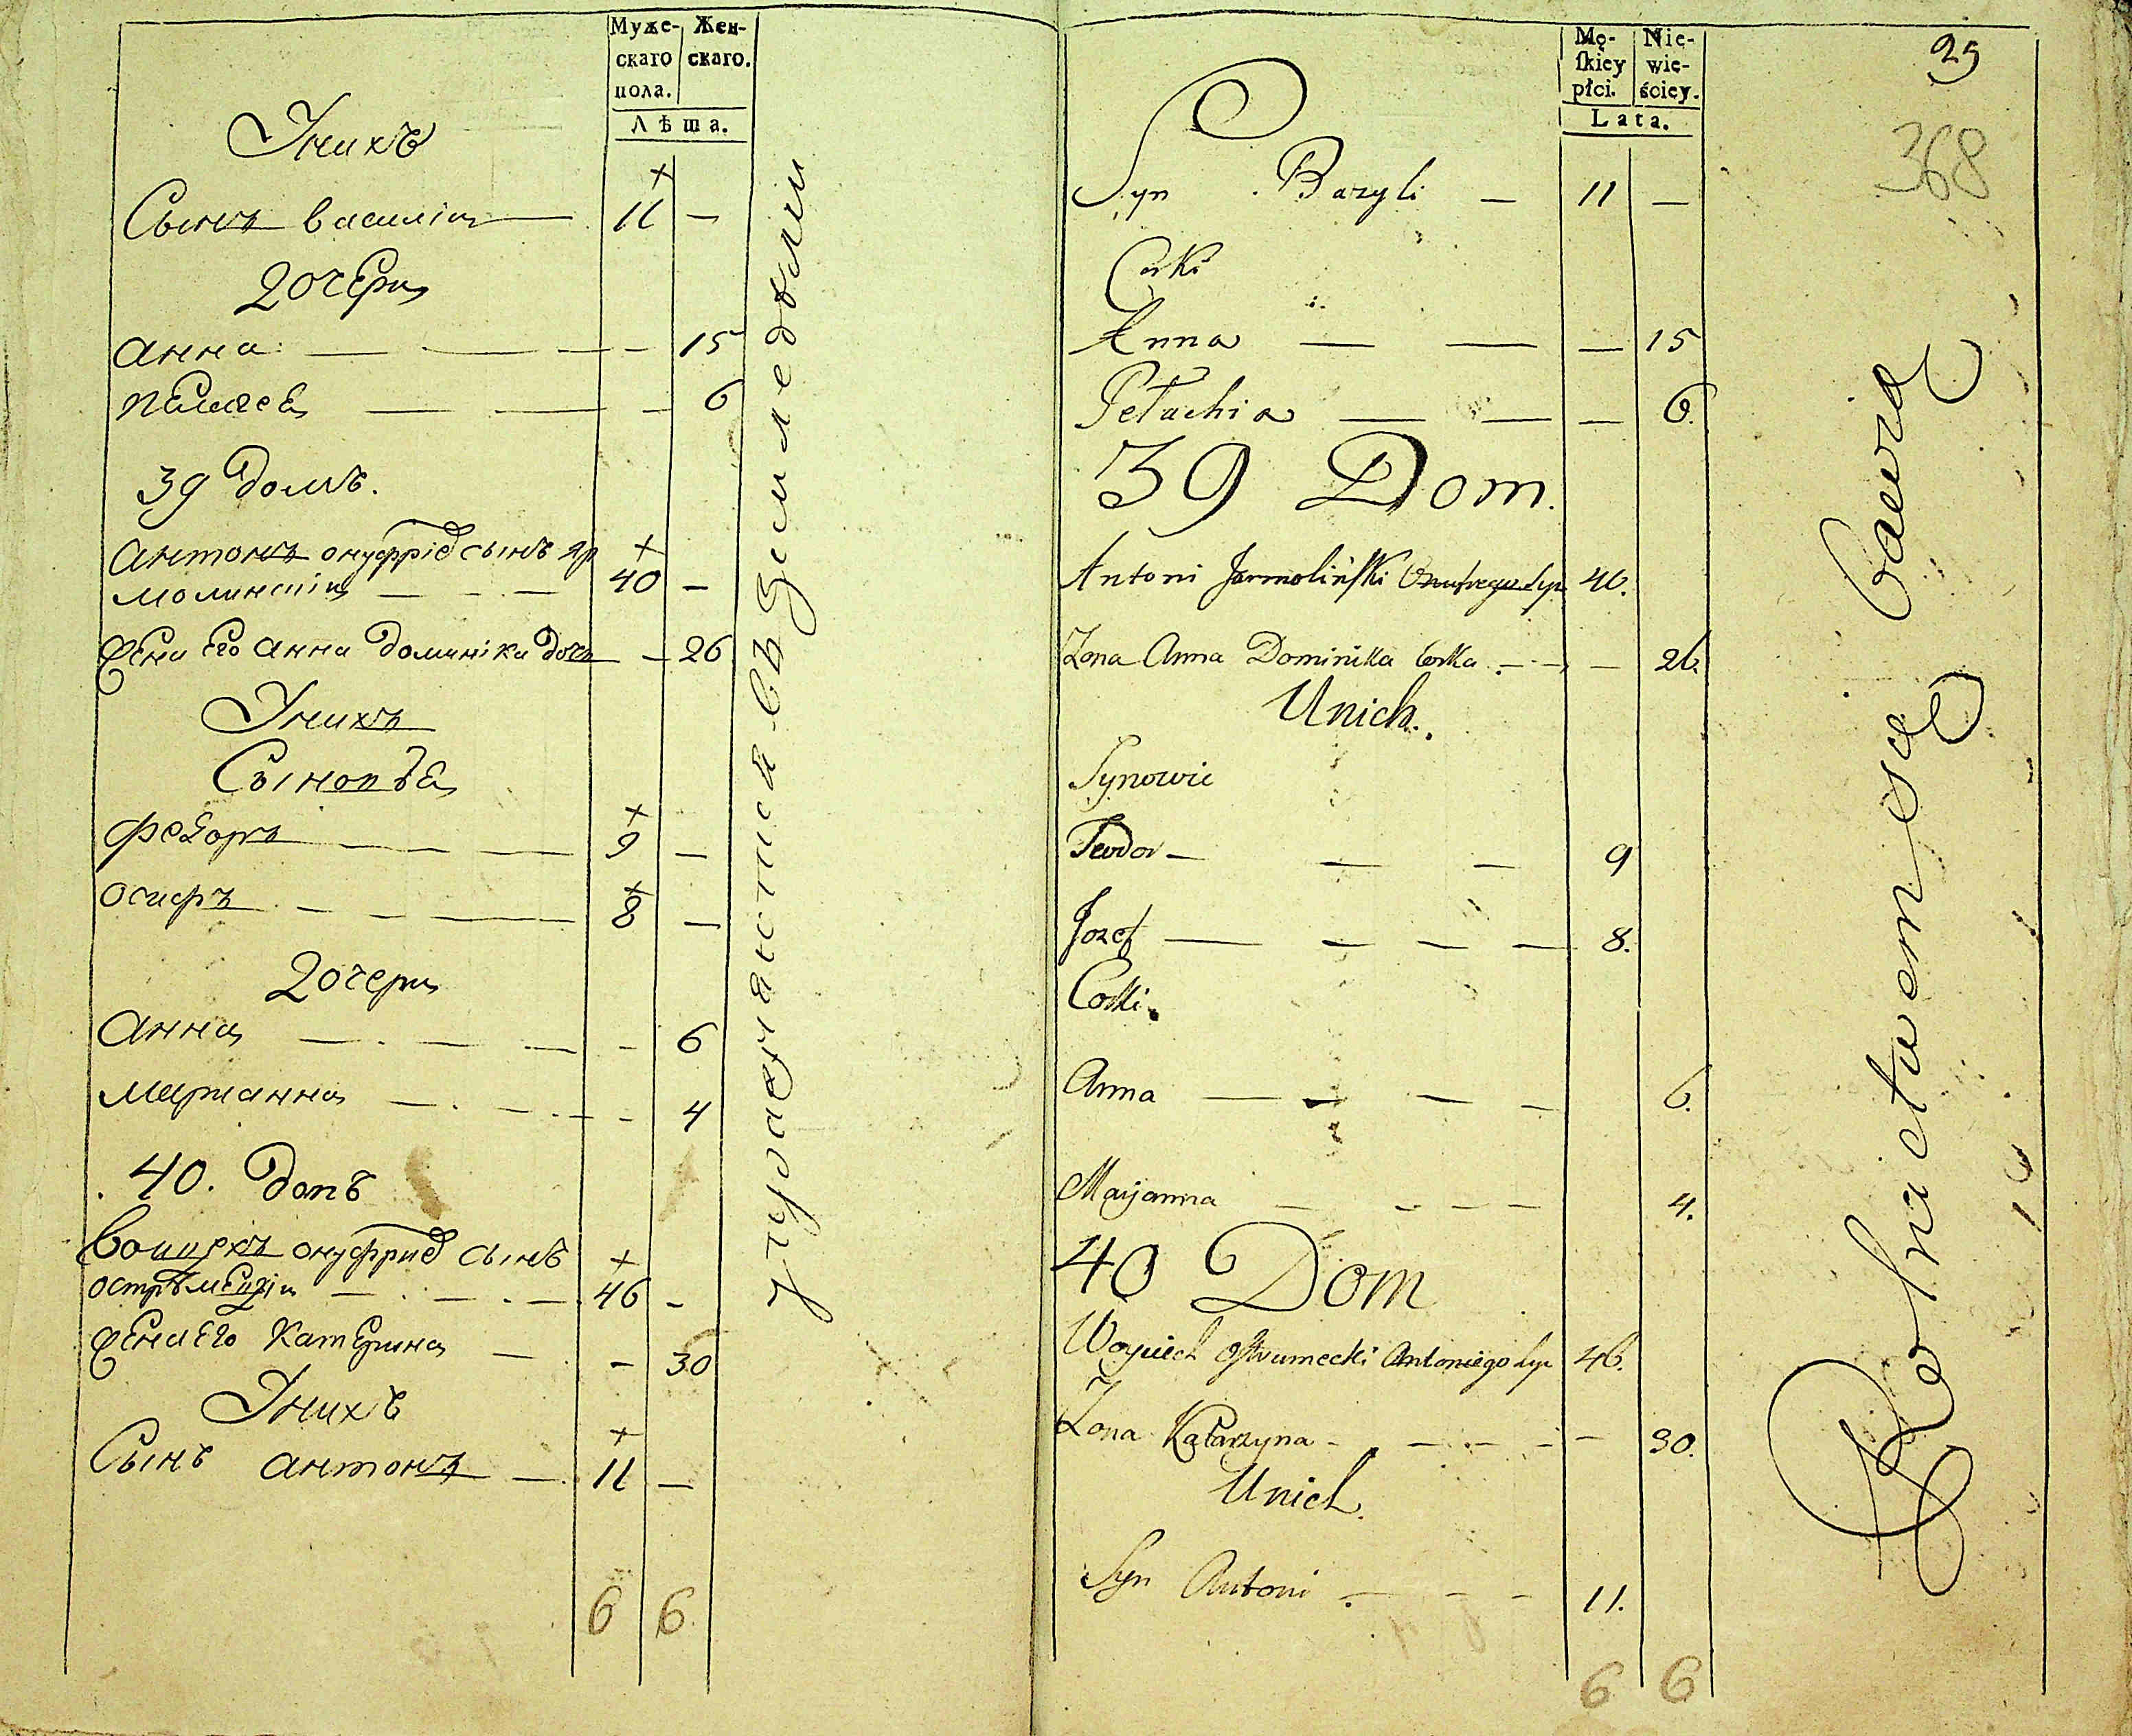 Муже-
скаго
пола.
Жен-
скаго.
Лѣта.
Унихъ
Сынъ василiи 11 —
дочери
анна — — — 15
пелагеа — — — 6
39 домъ.
антонъ онуффрiев сынъ яр
молинскiи — — — 40 —
жена его анна доминiка дочь — 26
Унихъ
Сыновъя
федоръ — — — 9 —
осифъ — — — 8 —
дочери
анна — — — 6
марианна — — — 4
40. домъ
воицехъ онуфриев сынъ
остръмецкiи — — — 46 —
жена его катерина — — 30
Унихъ
Сынъ антонъ — 11 —
6 6
упражняются въ земледѣлии
Mę-
skiey
płci.
Nie-
wie-
ściey.
Lata.
29
368
Syn Bazyli — 11 —
Corki
Anna — — — 15
Pełachia — — — 6.
39 Dom.
Antoni Jarmoliński Onufrego Syn 40.
Zona Anna Dominika Corka — — 26.
Unich.
Synowie
Teodor — — — 9
Jozef — — — — 8.
Corki.
Anna — — — — 6.
Marjanna — — — — 4.
40 Dom
Woyciech Ostrumecki Antoniego Syn 46.
Zona Katarzyna — — — — 30.
Unich.
Syn Antoni — — — 11.
6 6
Rolnictwem się bawią